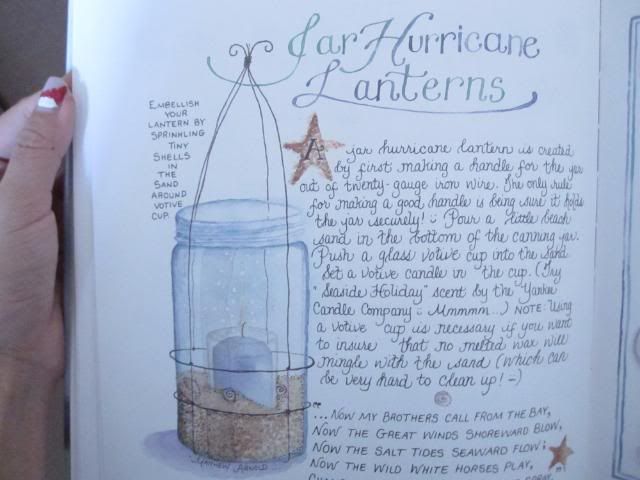 Jar Hurricane
Lanterns
EMBELLISH
YOUR
LANTERN BY
SPRINKLING
TINY
SHELLS
IN
THE
SAND
AROUND
VOTIVE
CUP.
A jar hurricane lantern is created
by first making a handle for the jar
out of twenty-gauge iron wire. The only rule
for making a good handle is being sure it holds
the jar securely! :) Pour a little beach
sand in the bottom of the canning jar.
Push a glass votive cup into the sand.
Set a votive candle in the cup. (Try
"Seaside Holiday" scent by the Yankee
Candle Company :) Mmmmm...) NOTE: Using
a votive cup is necessary if you want
to insure that no melted wax will
mingle with the sand (which can
be very hard to clean up! =)
...NOW MY BROTHERS CALL FROM THE BAY,
NOW THE GREAT WINDS SHOREWARD BLOW,
NOW THE SALT TIDES SEAWARD FLOW;
NOW THE WILD WHITE HORSES PLAY,
MATTHEW ARNOLD